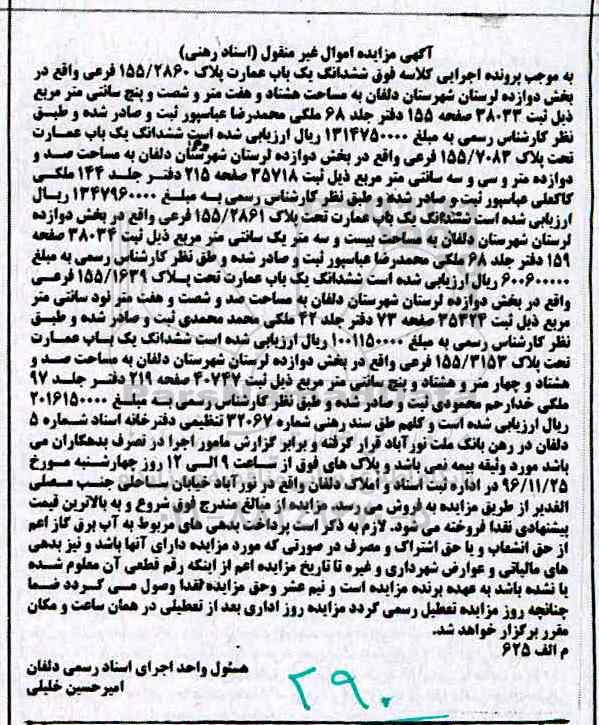 آگهی مزایده اموال غیر منقول (اسناد رهنی)
به موجب پرونده اجرایی کلاسه فوق ششدانگ یک باب عمارت پلاک ۱۵۵/۲۸۶۰ فرعی واقع در
بخش دوازده لرستان شهرستان دلفان به مساحت هشتاد و هفت متر و شصت و پنج سانتی متر مربع
ذیل ثبت ۳۸۰۳۳ صفحه ۱۵۵ دفتر جلد ۶۸ ملکی محمدرضا عباسپور ثبت و صادر شده و طبق
نظر کارشناس رسمی به مبلغ ۱۳۱۴۷۵۰۰۰۰ ریال ارزیابی شده است ششدانگ یک باب عمارت
تحت پلاک ۱۵۵/۷۰۸۳ فرعی واقع در بخش دوازده لرستان شهرستان دلفان به مساحت صد و
دوازده متر و سی و سه سانتی متر مربع ذیل ثبت ۳۵۷۱۸ صفحه ۲۱۵ دفتر جلد ۱۴۴ ملکی
کاکعلی عباسپور ثبت و صادر شده و طبق نظر کارشناس رسمی به مبلغ ۱۳۴۷۹۶۰۰۰۰ ریال
ارزیابی شده است ششدانگ یک باب عمارت تحت پلاک ۱۵۵/۲۸۶۱ فرعی واقع در بخش دوازده
لرستان شهرستان دلفان به مساحت بیست و سه متر یک سانتی متر مربع ذیل ثبت ۳۸۰۳۴ صفحه
۱۵۹ دفتر جلد ۶۸ ملکی محمدرضا عباسپور ثبت و صادر شده و طق نظر کارشناس رسمی به مبلغ
۶۰۰۶۰۰۰۰۰ ریال ارزیابی شده است ششدانگ یک باب عمارت تحت پلاک ۱۵۵/۱۶۳۹ فرعی
واقع در بخش دوازده لرستان شهرستان دلفان به مساحت صد و شصت و هفت متر نود سانتی متر
مربع ذیل ثبت ۳۵۳۲۴ صفحه ۷۳ دفتر جلد ۲۲ ملکی محمد محمدی ثبت و صادر شده و طبق
نظر کارشناس رسمی به مبلغ ۱۰۰۱۱۵۰۰۰۰ ریال ارزیابی شده است ششدانگ یک باب عمارت
تحت پلاک ۱۵۵/۳۱۵۳ فرعی واقع در بخش دوازده لرستان شهرستان دلفان به مساحت صد و
هشتاد و چهار متر و هشتاد و پنج سانتی متر مربع ذیل ثبت ۴۰۷۴۷ صفحه ۲۱۹ دفتر جلد ۹۷
ملکی خدارحم محمودی ثبت و صادر شده و طبق نظر کارشناس رسمی به مبلغ ۲۰۱۶۱۵۰۰۰۰
ریال ارزیابی شده است و گلهم طق سند رهنی شماره ۳۲۰۶۷ تنظیمی دفترخانه اسناد شماره ۵
دلفان در رهن بانک ملت نورآباد قرار گرفته و برابر گزارش مامور اجرا در تصرف بدهکاران می
باشد مورد وثیقه بیمه نمی باشد و پلاک های فوق از ساعت ۹ الی ۱۲ روز چهارشنبه مورخ
۹۶/۱۱/۲۵ در اداره ثبت اسناد و املاک دلفان واقع در نورآباد خیابان ساحلی جنب مصلی
الغدیر از طریق مزایده به فروش می رسد. مزایده از مبالغ مندرج فوق شروع و به بالاترین قیمت
پیشنهادی نقدا فروخته می شود. لازم به ذکر است پرداخت بدهی های مربوط به آب برق گاز اعم
از حق انشعاب و یا حق اشتراک و مصرف در صورتی که مورد مزایده دارای آنها باشد و نیز بدهی
های مالیاتی و عوارض شهرداری و غیره تا تاریخ مزایده اعم از اینکه رقم قطعی آن معلوم شده
یا نشده باشد به عهده برنده مزایده است و نیم عشر وحق مزایده نقدا وصول می گردد ضما
چنانچه روز مزایده تعطیل رسمی گردد مزایده روز اداری بعد از تعطیلی در همان ساعت و مکان
مقرر برگزار خواهد شد.
م الف ۶۲۵
مسئول واحد اجرای اسناد رسمی دلفان
امیرحسین خلیلی
۲۹۰